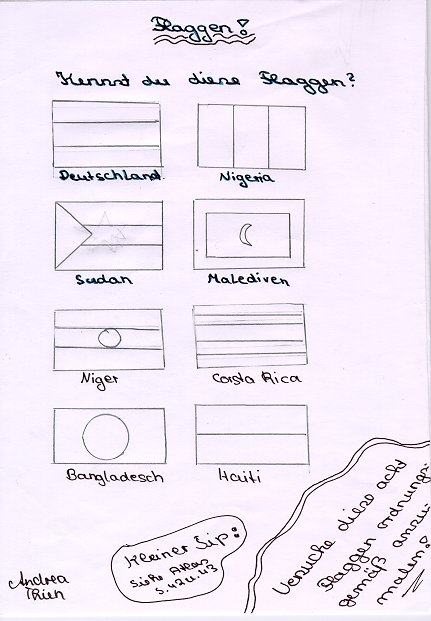 Flaggen!
Kennst du diese Flaggen?
Deutschland
Nigeria
Sudan
Malediven
Niger
Costa Rica
Bangladesch
Haiti
Versuche diese acht
Flaggen ordnungs-
gemäß anzu-
malen!
Kleiner Tip:
Siehe Atlas
S. 42 u. 43
Andrea